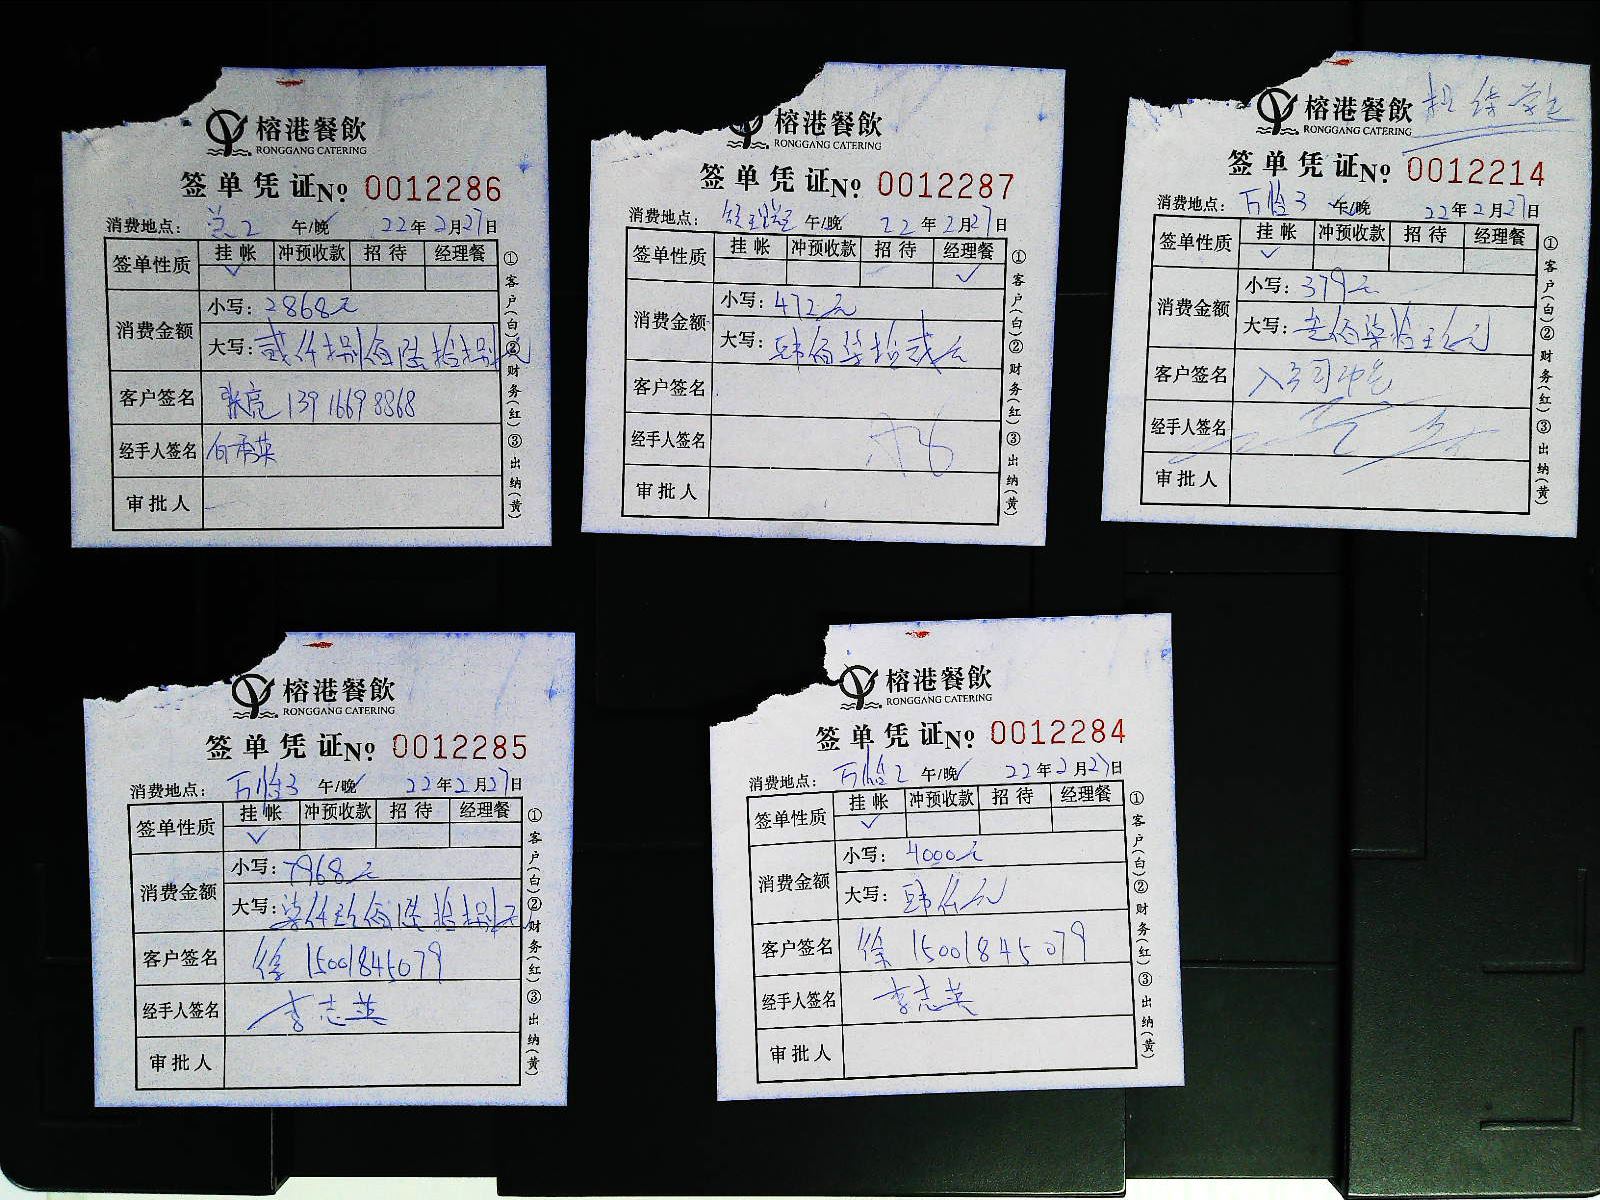 榕港餐飲
RONGGANG CATERING
签单凭证 No 0012286
消费地点: 午/晚 22年2月27日
签单性质 挂帐 冲预收款 招待 经理餐
✓
消费金额 小写: 2868元
大写: 贰仟捌佰陆拾捌元
客户签名 张亮 13916698868
经手人签名
审批人
①客户(白)②财务(红)③出纳(黄)
榕港餐飲
RONGGANG CATERING
签单凭证 No 0012287
消费地点: 午/晚 22年2月27日
签单性质 挂帐 冲预收款 招待 经理餐
✓
消费金额 小写: 472元
大写: 肆佰柒拾贰元
客户签名
经手人签名
审批人
①客户(白)②财务(红)③出纳(黄)
榕港餐飲
RONGGANG CATERING
签单凭证 No 0012214
消费地点: 万怡3 午/晚 22年2月27日
签单性质 挂帐 冲预收款 招待 经理餐
✓
消费金额 小写: 379元
大写: 叁佰柒拾玖元
客户签名
经手人签名
审批人
①客户(白)②财务(红)③出纳(黄)
榕港餐飲
RONGGANG CATERING
签单凭证 No 0012285
消费地点: 万怡3 午/晚 22年2月27日
签单性质 挂帐 冲预收款 招待 经理餐
✓
消费金额 小写: 7968元
大写: 柒仟玖佰陆拾捌元
客户签名 徐 15001845079
经手人签名 李志英
审批人
①客户(白)②财务(红)③出纳(黄)
榕港餐飲
RONGGANG CATERING
签单凭证 No 0012284
消费地点: 万怡2 午/晚 22年2月27日
签单性质 挂帐 冲预收款 招待 经理餐
✓
消费金额 小写: 4000元
大写: 肆仟元
客户签名 徐 15001845079
经手人签名 李志英
审批人
①客户(白)②财务(红)③出纳(黄)